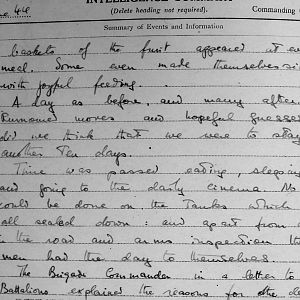 INTELLIGENCE
(Delete heading not required).
Commanding
Summary of Events and Information
baskets of the fruit appeared at
meal. Some even made themselves
with joyful feeding.
A day as before, and many after
Rumoured moves and hopeful guesses
did we think that we were to stay
another Ten days.
Time was passed eating, sleeping
and going to the daily cinema. No
could be done on the Tanks which
all sealed down: and apart from a
in the road and arms inspection th
men had the day to themselves.
The Brigade Commander in a letter to
Battalions explained the reasons for the d